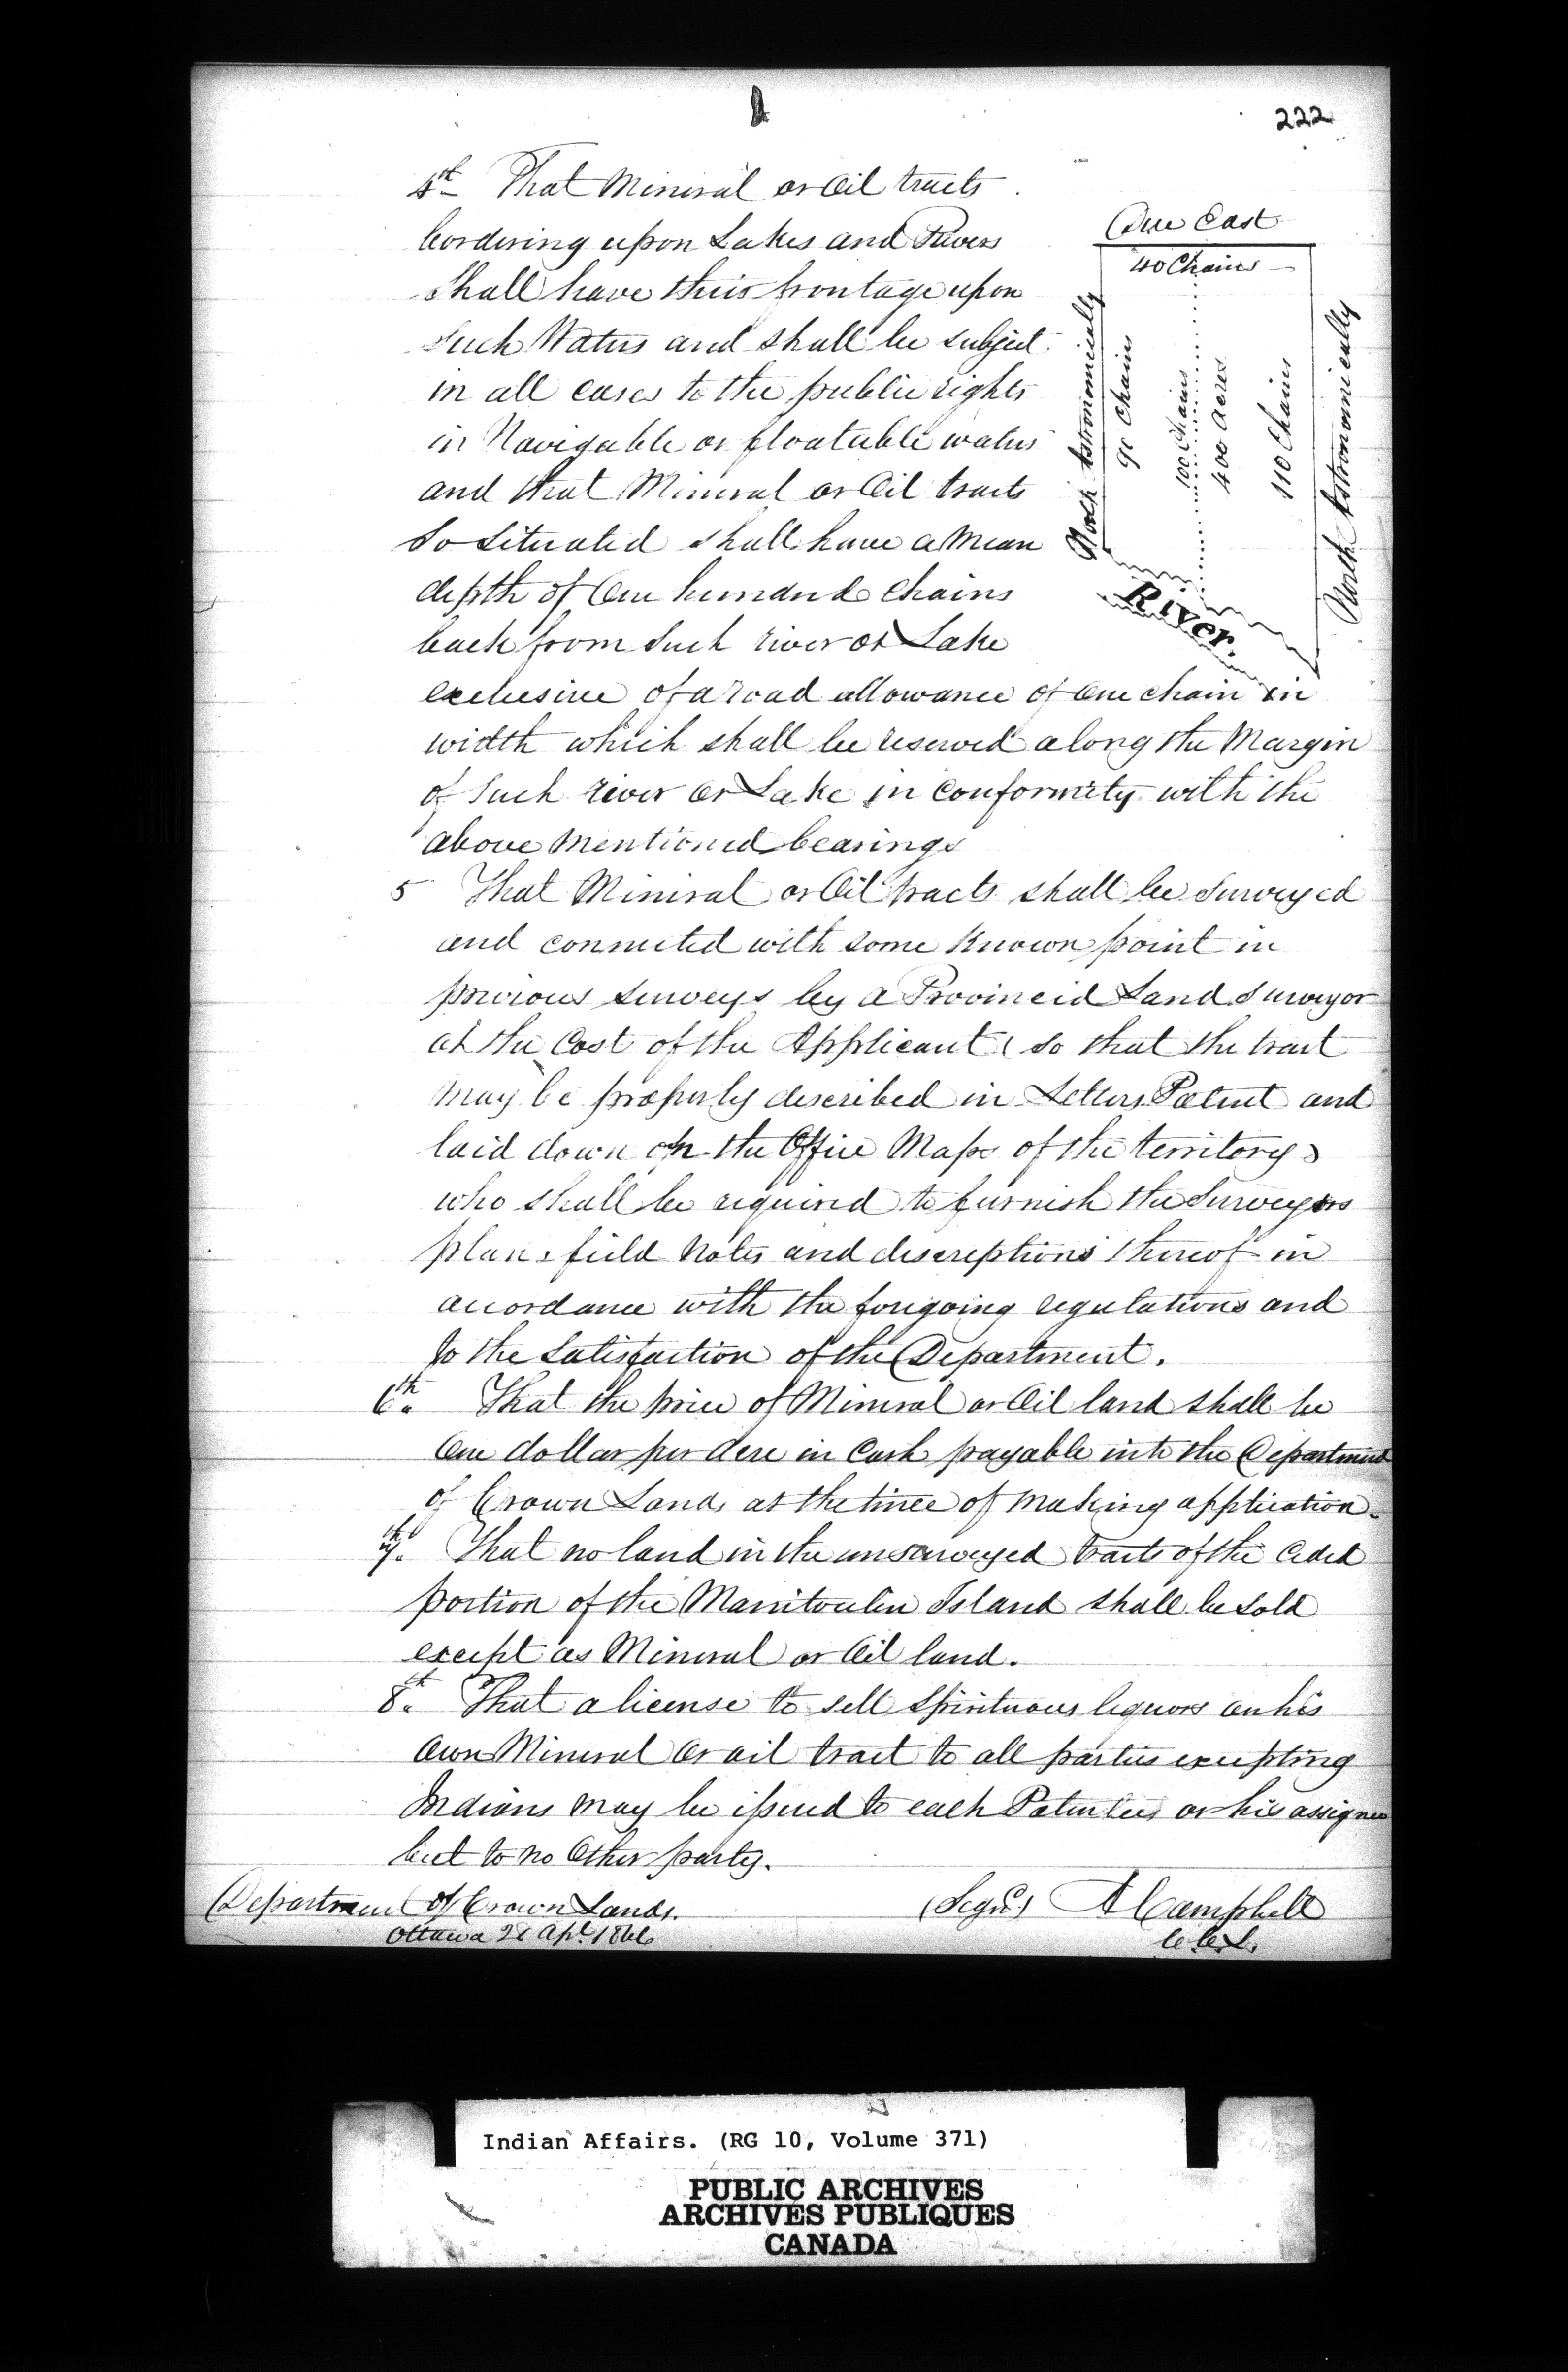 222
4th That Mineral or Oil tracts
bordering upon Lakes and Rivers
Shall have their frontage upon
Such Waters and shall be subject
in all cases to the public rights
in Navigable or floatable waters
and that Mineral or Oil tracts
So Situated shall have a Mean
depth of One hundred Chains
back from Such river or Lake
exclusive of a road allowance of One chain in
width which shall be reserved along the Margin
of Such river or Lake in Conformity with the
above Mentioned bearings
Due East
40 Chains
North Astronomically
90 Chains
100 Chains
400 Acres
110 Chains
North Astronomically
River
5 That Mineral or Oil tracts shall be Surveyed
and connected with some Known point in
previous surveys by a Provincial Land Surveyor
at the Cost of the Applicant (so that the tract
may be properly described in Letters Patent and
laid down on the Office Maps of the territory)
who shall be required to furnish the Surveyors
plan, field Notes and descriptions thereof in
accordance with the foregoing regulations and
to the Satisfaction of the Department.
6th. That the price of Mineral or Oil land shall be
One dollar per Acre in Cash payable into the Department
of Crown Lands at the time of Making application.
7th. That no land in the unsurveyed tracts of the Ceded
portion of the Manitoulin Island shall be Sold
except as Mineral or Oil land.
8th. That a license to sell Spirituous liquors on his
own Mineral or oil tract to all parties excepting
Indians may be issued to each Patentee or his assignee
but to no Other party.
Department of Crown Lands.
(Sigd.) A Campbell
Ottawa 21 Apl. 1866
C.C.L.
Indian Affairs. (RG 10, Volume 371)
PUBLIC ARCHIVES
ARCHIVES PUBLIQUES
CANADA